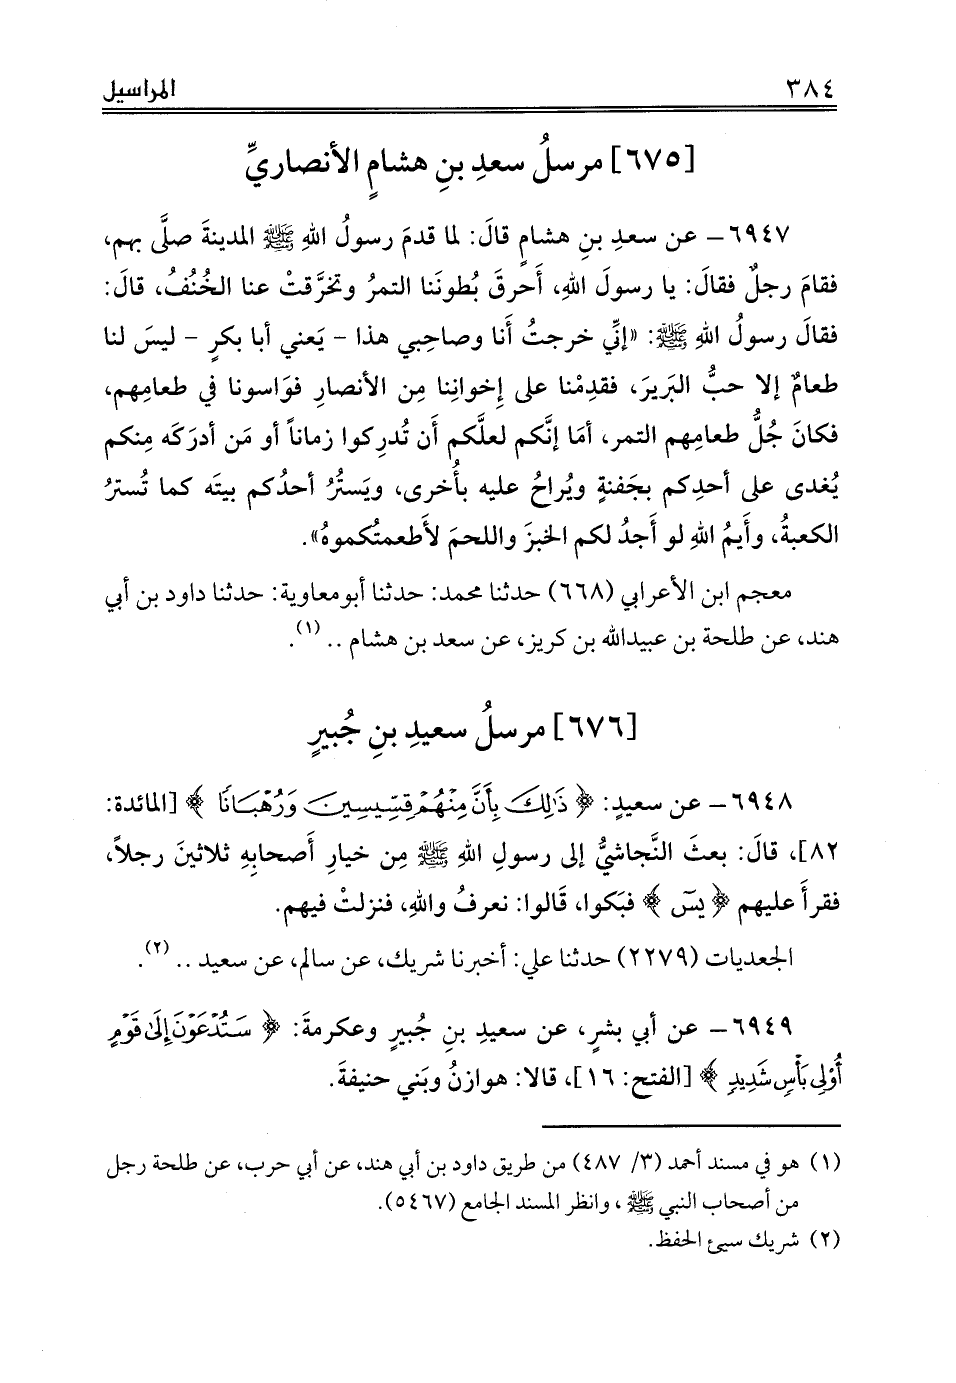 ٣٨٤ المراسيل
[٦٧٥] مرسلُ سعدِ بنِ هشامٍ الأنصاريِّ
٦٩٤٧ – عن سعدِ بنِ هشامٍ قالَ: لما قدمَ رسولُ اللهِ ﷺ المدينةَ صلَّى بهم،
فقامَ رجلٌ فقالَ: يا رسولَ اللهِ، أَحرقَ بُطونَنا التمرُ وتخرَّقتْ عنا الخُنُفُ، قالَ:
فقالَ رسولُ اللهِ ﷺ: «إنِّي خرجتُ أَنا وصاحِبي هذا – يَعني أبا بكرٍ – ليسَ لنا
طعامٌ إلا حبُّ البَريرَ، فقدِمْنا على إِخوانِنا مِن الأنصارِ فوَاسونا في طعامِهم،
فكانَ جُلُّ طعامِهم التمر، أمَا إنَّكم لعلَّكم أَن تُدرِكوا زماناً أو مَن أدرَكَه مِنكم
يُغدى على أحدِكم بجَفنةٍ ويُراحُ عليه بأُخرى، ويَستُرُ أحدُكم بيتَه كما تُسترُ
الكعبةُ، وأَيمُ اللهِ لو أَجدُ لكم الخبزَ واللحمَ لأَطعمتُكموهُ».
معجم ابن الأعرابي (٦٦٨) حدثنا محمد: حدثنا أبومعاوية: حدثنا داود بن أبي
هند، عن طلحة بن عبيدالله بن كريز، عن سعد بن هشام .. (١).
[٦٧٦] مرسلُ سعيدِ بنِ جُبيرٍ
٦٩٤٨ – عن سعيدٍ: ﴿ ذَٰلِكَ بِأَنَّ مِنْهُمْ قِسِّيسِينَ وَرُهْبَانًا ﴾ [المائدة:
٨٢]، قالَ: بعثَ النَّجاشيُّ إلى رسولِ اللهِ ﷺ مِن خيارِ أَصحابِهِ ثلاثينَ رجلاً،
فقرأَ عليهم ﴿ يسٓ ﴾ فبَكوا، قَالوا: نعرفُ واللهِ، فنزلتْ فيهم.
الجعديات (٢٢٧٩) حدثنا علي: أخبرنا شريك، عن سالم، عن سعيد .. (٢).
٦٩٤٩ – عن أبي بشرٍ، عن سعيدِ بنِ جُبيرٍ وعكرمةَ: ﴿ سَتُدْعَوْنَ إِلَىٰ قَوْمٍ
أُوْلِى بَأْسٍ شَدِيدٍ ﴾ [الفتح: ١٦]، قالا: هوازنُ وبَني حنيفةَ.
(١) هو في مسند أحمد (٣/ ٤٨٧) من طريق داود بن أبي هند، عن أبي حرب، عن طلحة رجل
من أصحاب النبي ﷺ، وانظر المسند الجامع (٥٤٦٧).
(٢) شريك سيئ الحفظ.